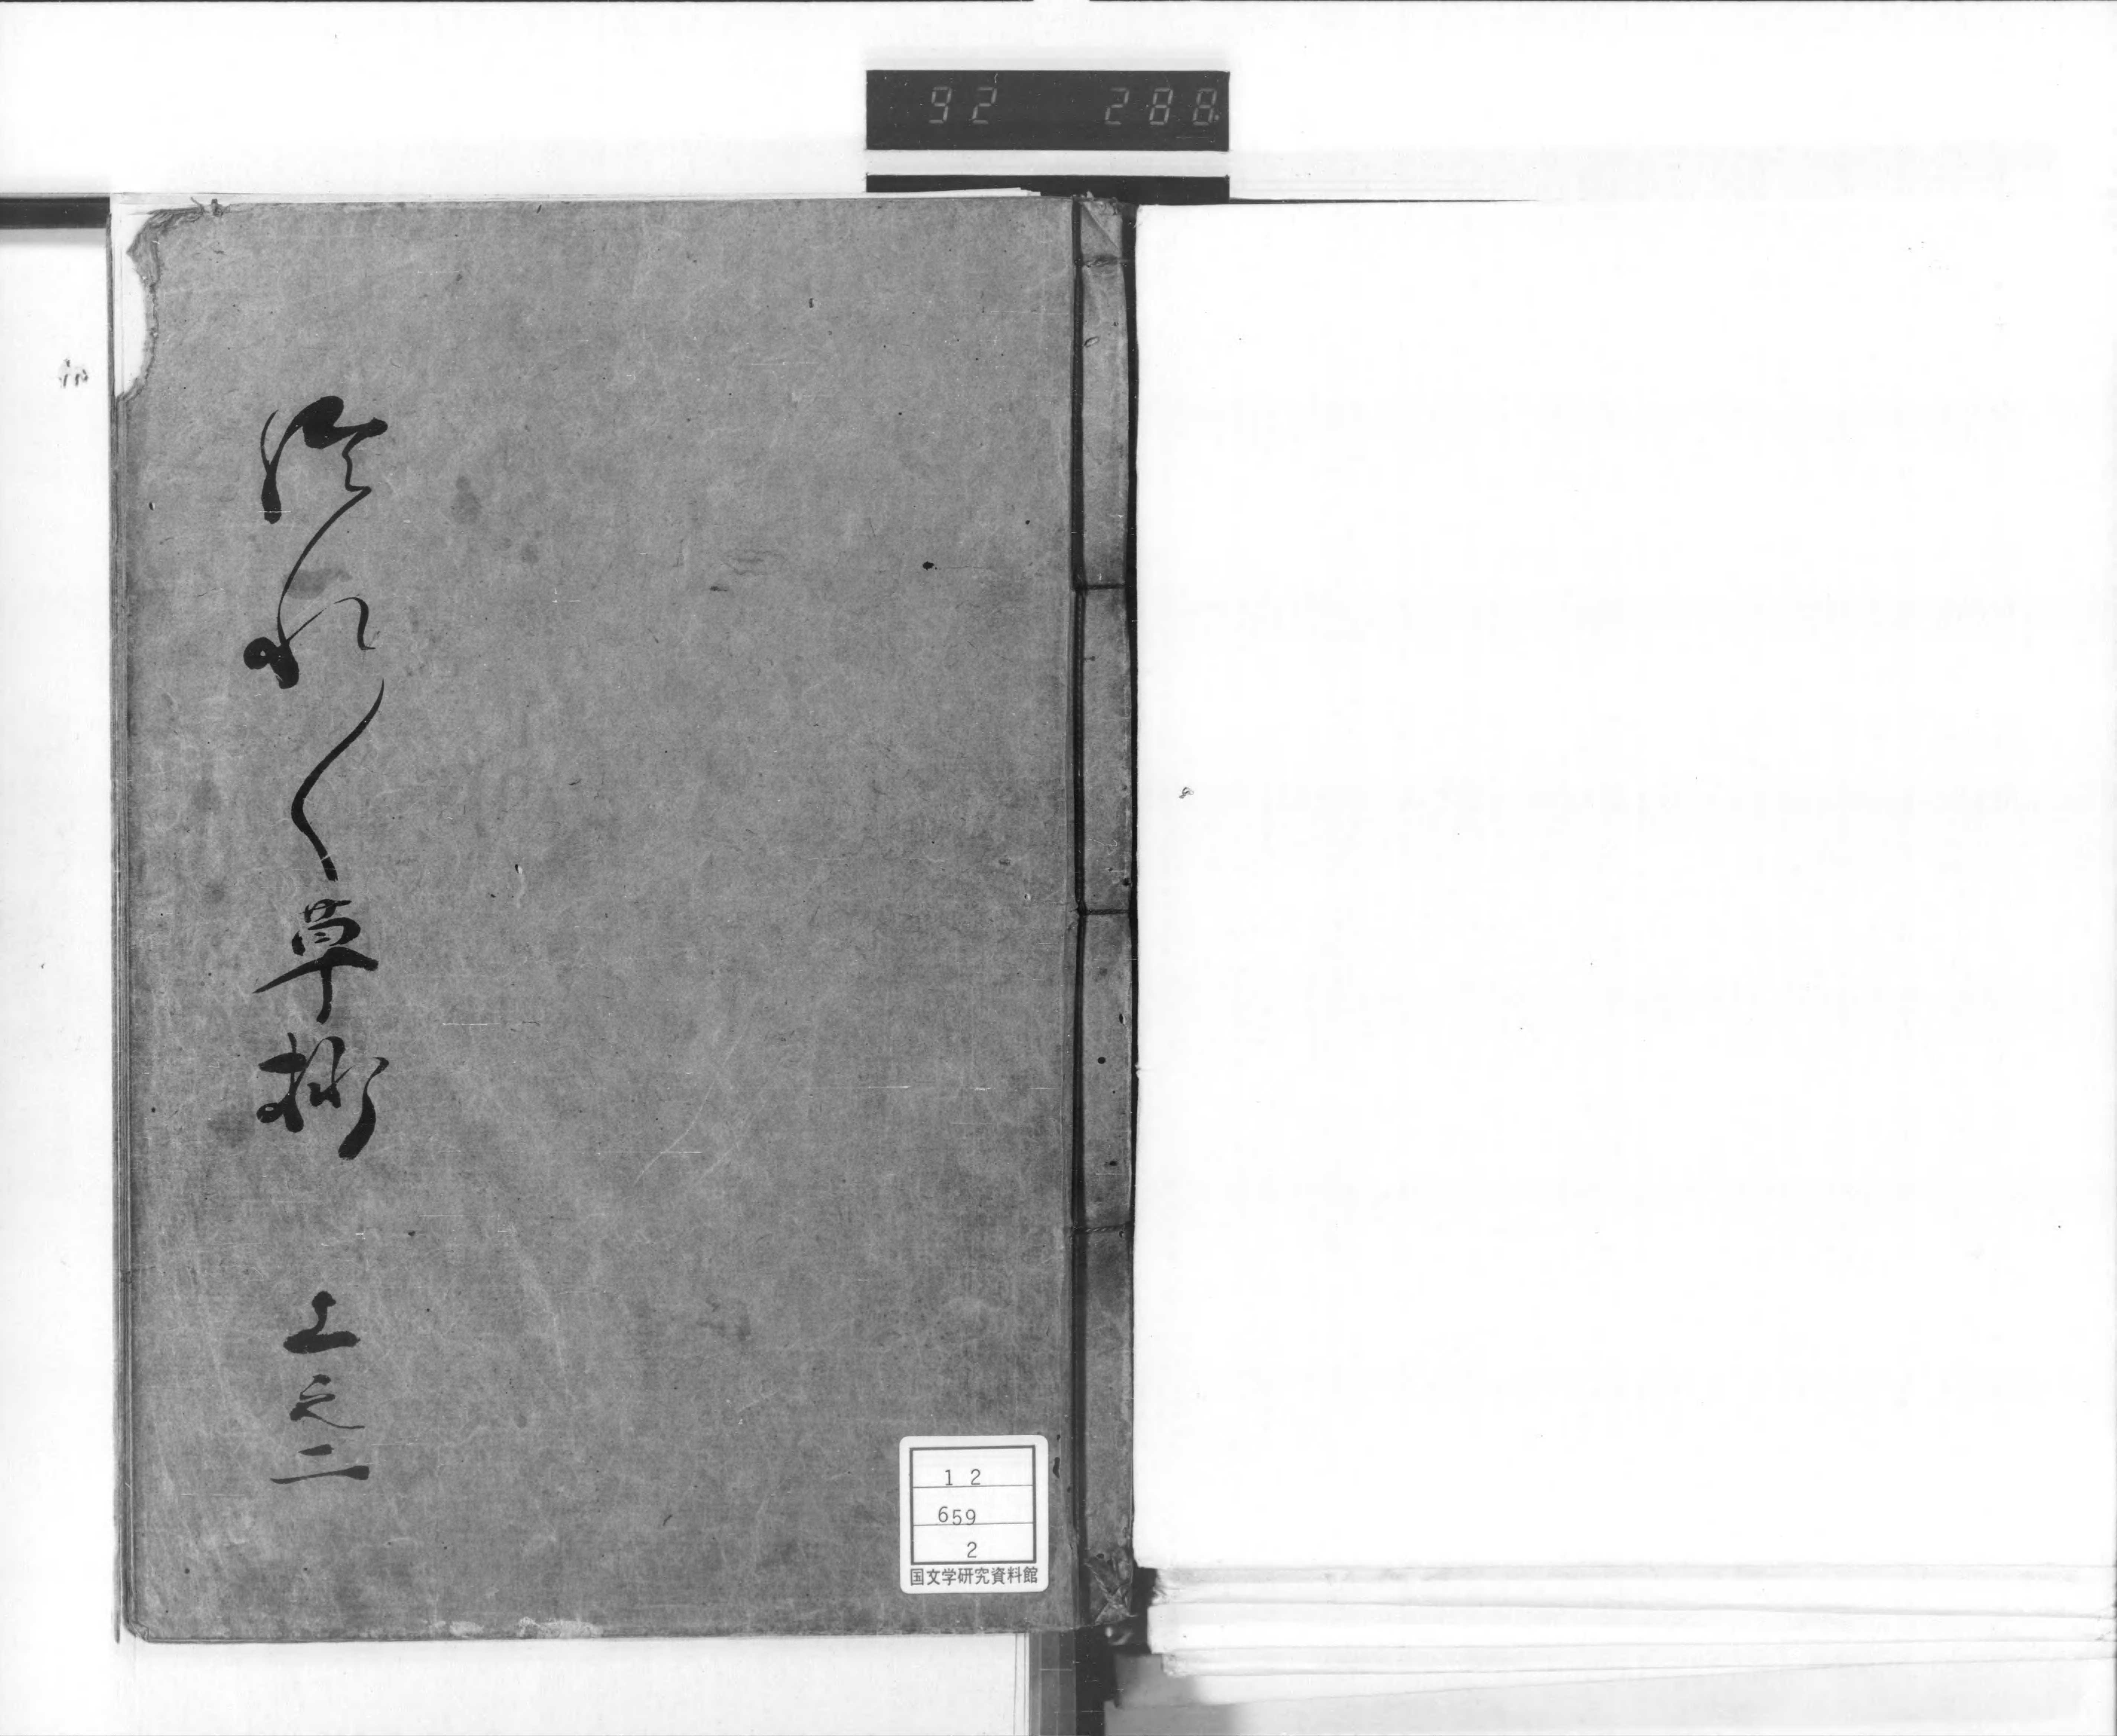 92 288
徒れ〳〵草抄 上之二
12
659
2
国文学研究資料館